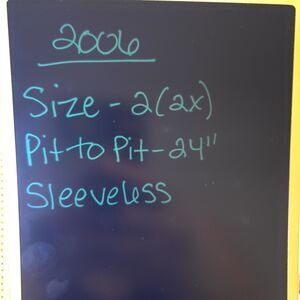 2006
Size - 2(2x)
Pit to Pit - 24"
Sleeveless